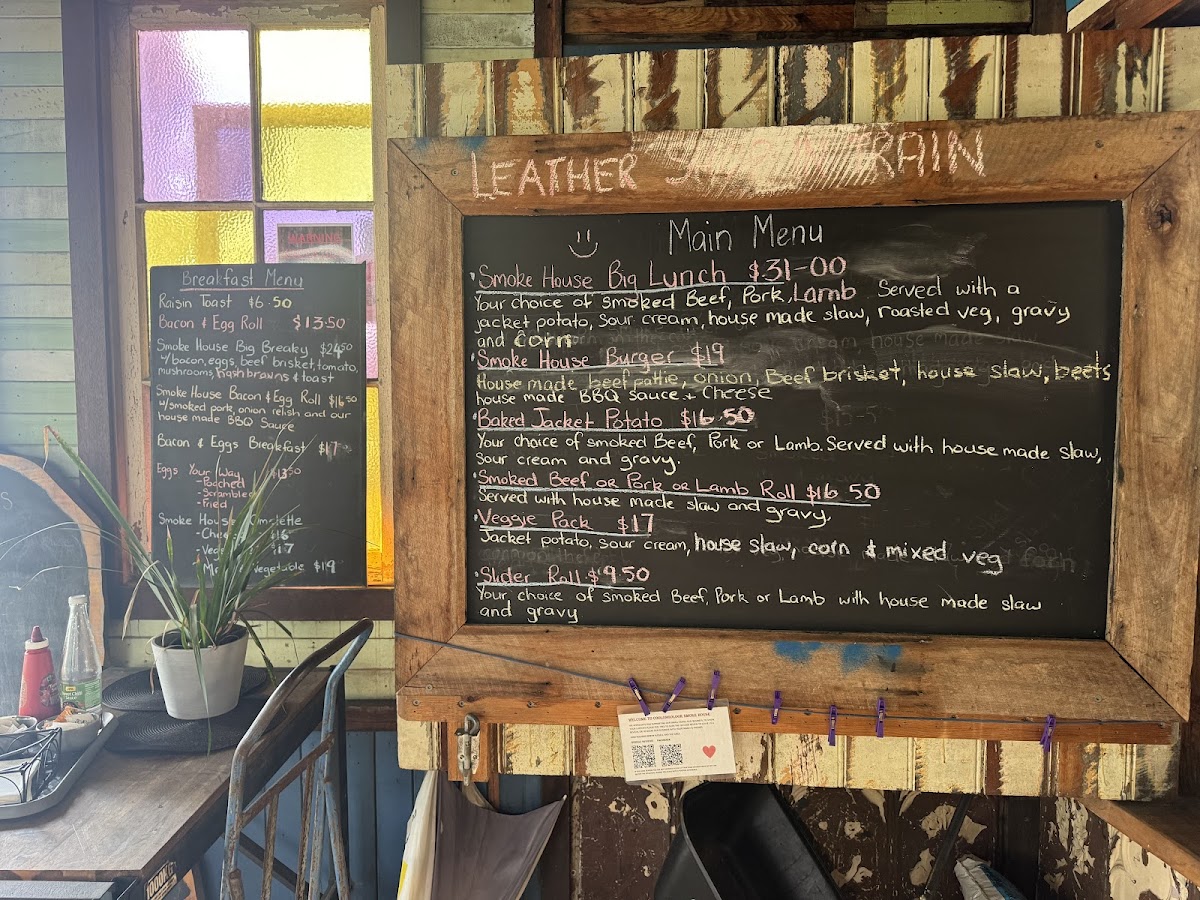 LEATHER TRAIN
Main Menu
Smoke House Big Lunch $31-00
Your choice of smoked Beef, Pork, Lamb Served with a
jacket potato, sour cream, house made slaw, roasted veg, gravy
and Corn
Smoke House Burger $19
House made beef pattie, onion, Beef brisket, house slaw, beets
house made BBQ Sauce + Cheese
Baked Jacket Potato $16.50
Your choice of smoked Beef, Pork or Lamb. Served with house made slaw,
Sour cream and gravy.
Smoked Beef or Pork or Lamb Roll $16.50
Served with house made slaw and gravy,
Veggie Pack $17
Jacket potato, sour cream, house slaw, corn & mixed veg
Slider Roll $9.50
Your choice of smoked Beef, Pork or Lamb with house made slaw
and gravy
WARNING
Breakfast Menu
Raisin Toast $6.50
Bacon & Egg Roll $13.50
Smoke House Big Breaky $24.50
w/bacon, eggs, beef brisket, tomato,
mushrooms, hash browns & toast
Smoke House Bacon & Egg Roll $16.50
w/smoked pork, onion relish and our
house made BBQ Sauce
Bacon & Eggs Breakfast $17
Eggs Your Way $13.50
- Poached
- Scrambled
- Fried
Smoke House Omelette
$16
$17
vegetable $19